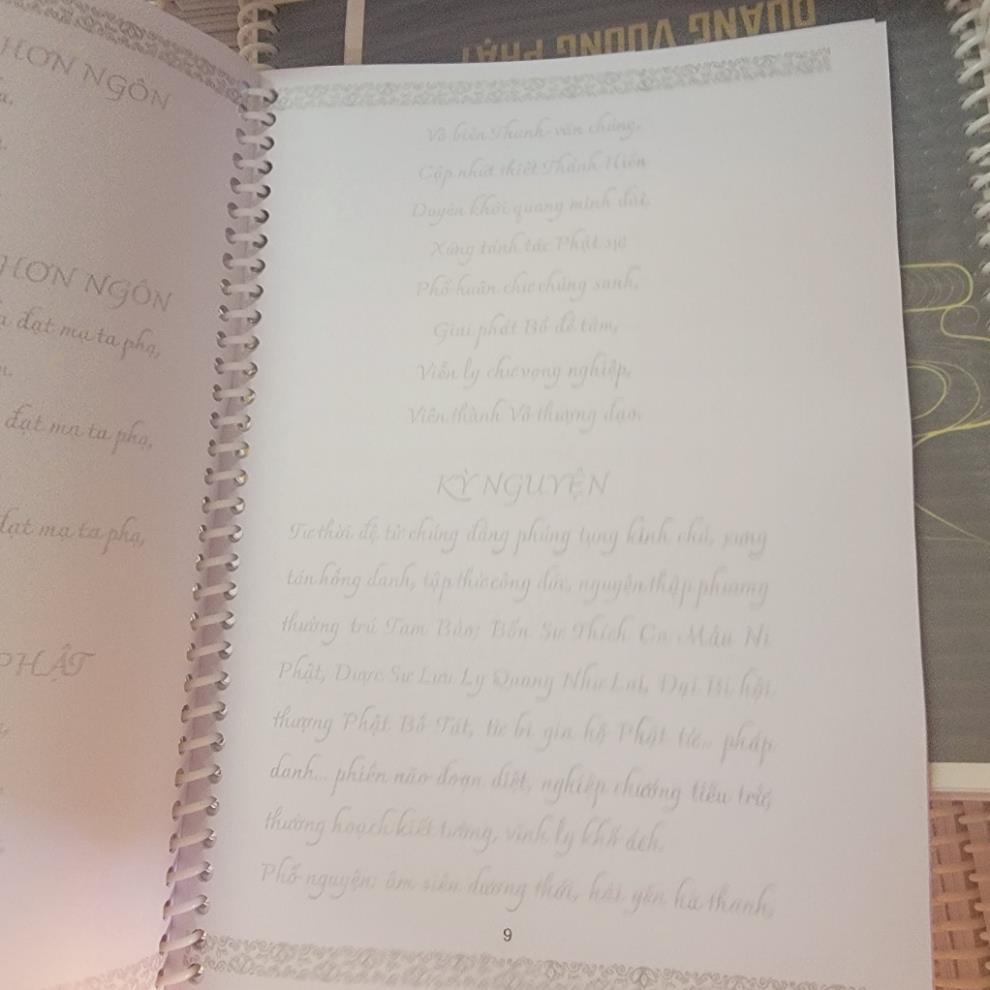 QUANG VƯƠNG PHẬT
HƠN NGÔN
HƠN NGÔN
đạt mạ ta phạ,
đạt mạ ta phạ,
đạt mạ ta phạ,
PHẬT
Vô biên Thanh-văn chúng,
Cập nhứt thiết Thánh Hiền
Duyên khởi quang minh đài,
Xứng tánh tác Phật sự
Phổ huân chư chúng sanh,
Giai phát Bồ đề tâm,
Viễn ly chư vọng nghiệp,
Viên thành Vô thượng đạo.
KỲ NGUYỆN
Tư thời đệ tử chúng đẳng phúng tụng kinh chú, xưng
tán hồng danh, tập thử công đức, nguyện thập phương
thường trú Tam Bảo; Bổn Sư Thích Ca Mâu Ni
Phật, Dược Sư Lưu Ly Quang Như Lai, Đại Bi hội
thượng Phật Bồ Tát, từ bi gia hộ Phật tử... pháp
danh... phiền não đoạn diệt, nghiệp chướng tiêu trừ,
thường hoạch kiết tường, vĩnh ly khổ ách.
Phổ nguyện: âm siêu dương thới, hải yến hà thanh,
9